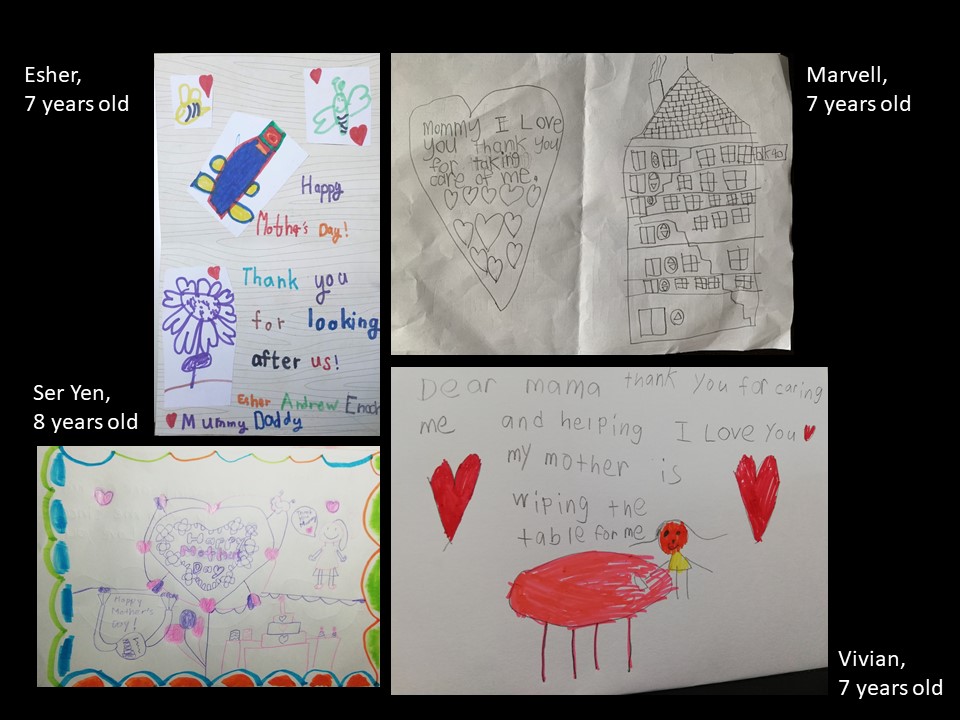 Esher,
7 years old
Happy
Mother's Day!
Thank you
for looking
after us!
Esher Andrew Enoch
Mummy Daddy
Marvell,
7 years old
Mommy I Love
you Thank you
for taking
care of me.
blk40
Ser Yen,
8 years old
Happy
Mother's
Day
Happy
Mother's
Day!
Dear mama thank you for caring
me and helping I Love You
my mother is
wiping the
table for me
Vivian,
7 years old